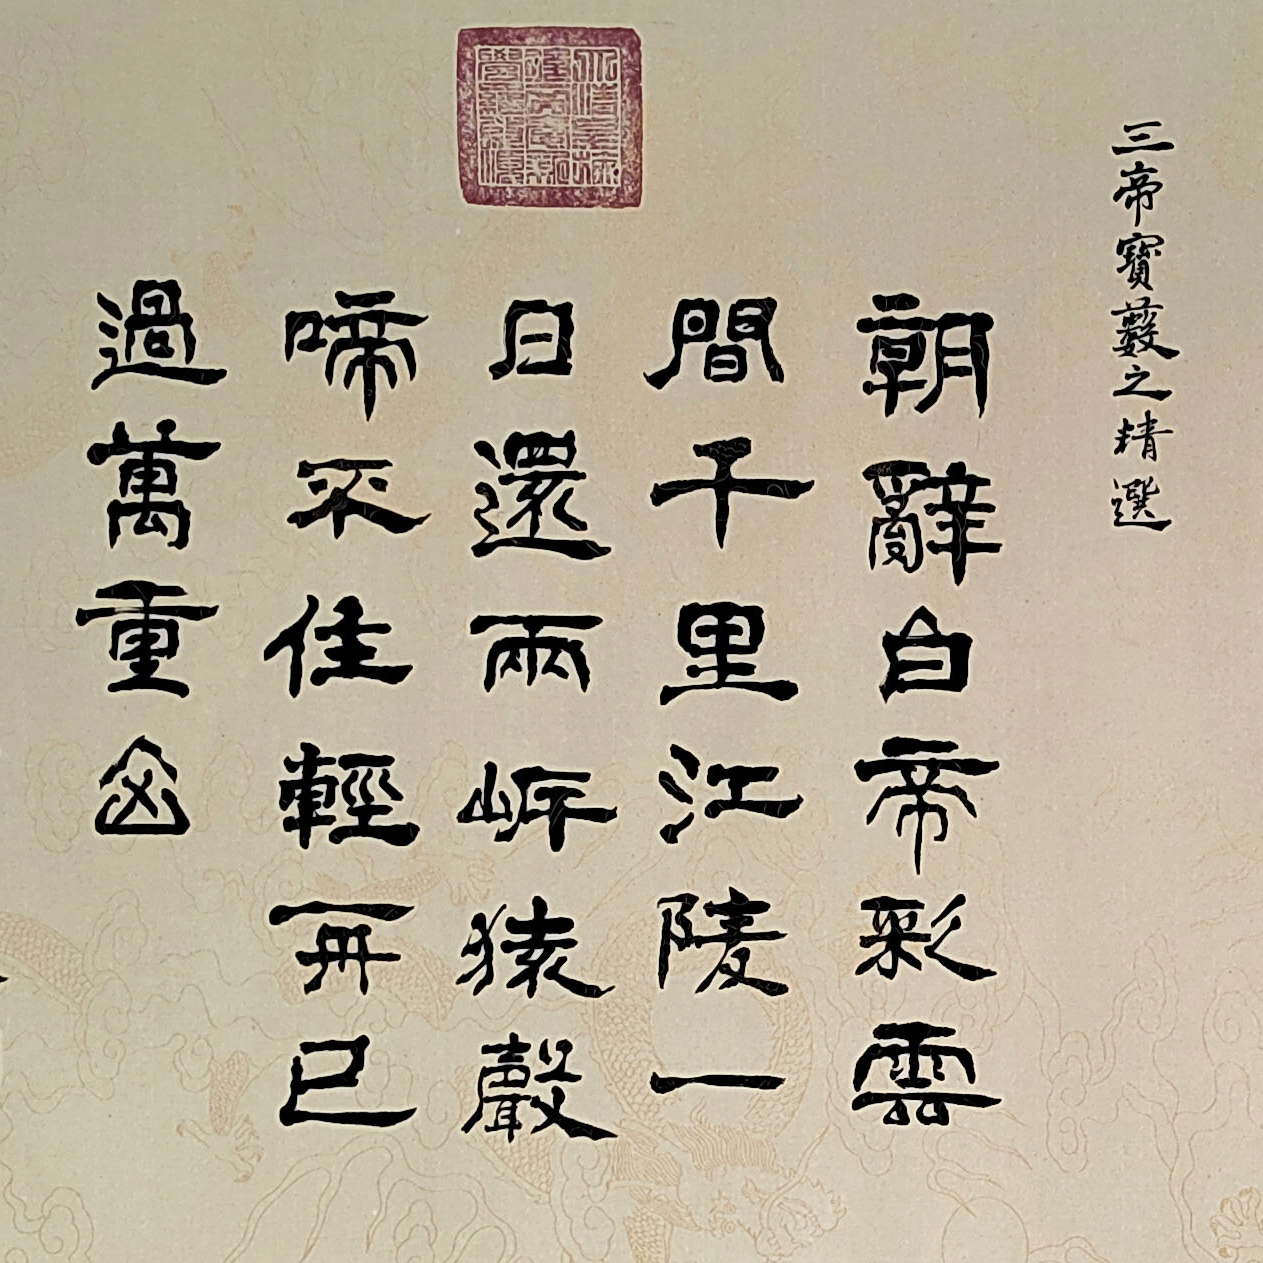 三帝寶藪之精選
朝辭白帝彩雲
間千里江陵一
日還兩岸猿聲
啼不住輕舟已
過萬重山